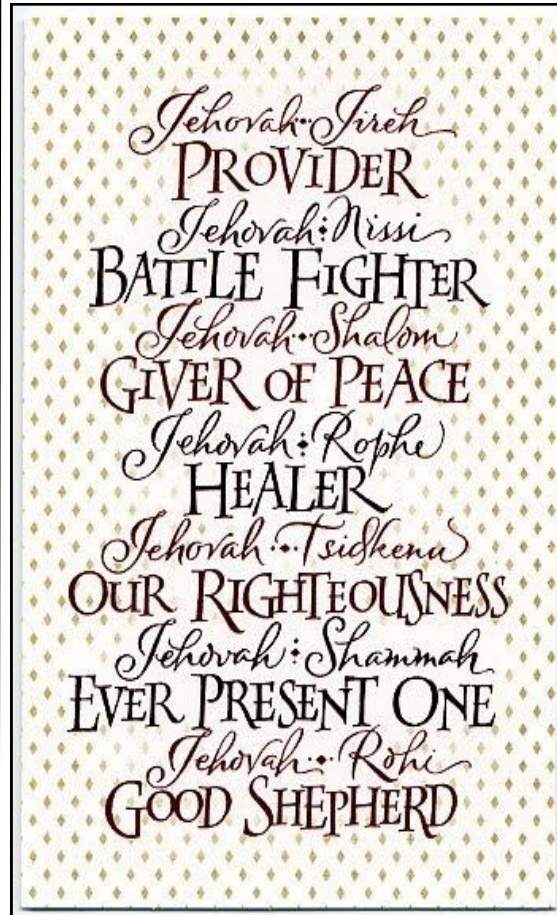 Jehovah·Jireh
PROVIDER
Jehovah:Nissi
BATTLE FIGHTER
Jehovah·Shalom
GIVER OF PEACE
Jehovah:Rophe
HEALER
Jehovah·Tsidkenu
OUR RIGHTEOUSNESS
Jehovah:Shammah
EVER PRESENT ONE
Jehovah·Rohi
GOOD SHEPHERD